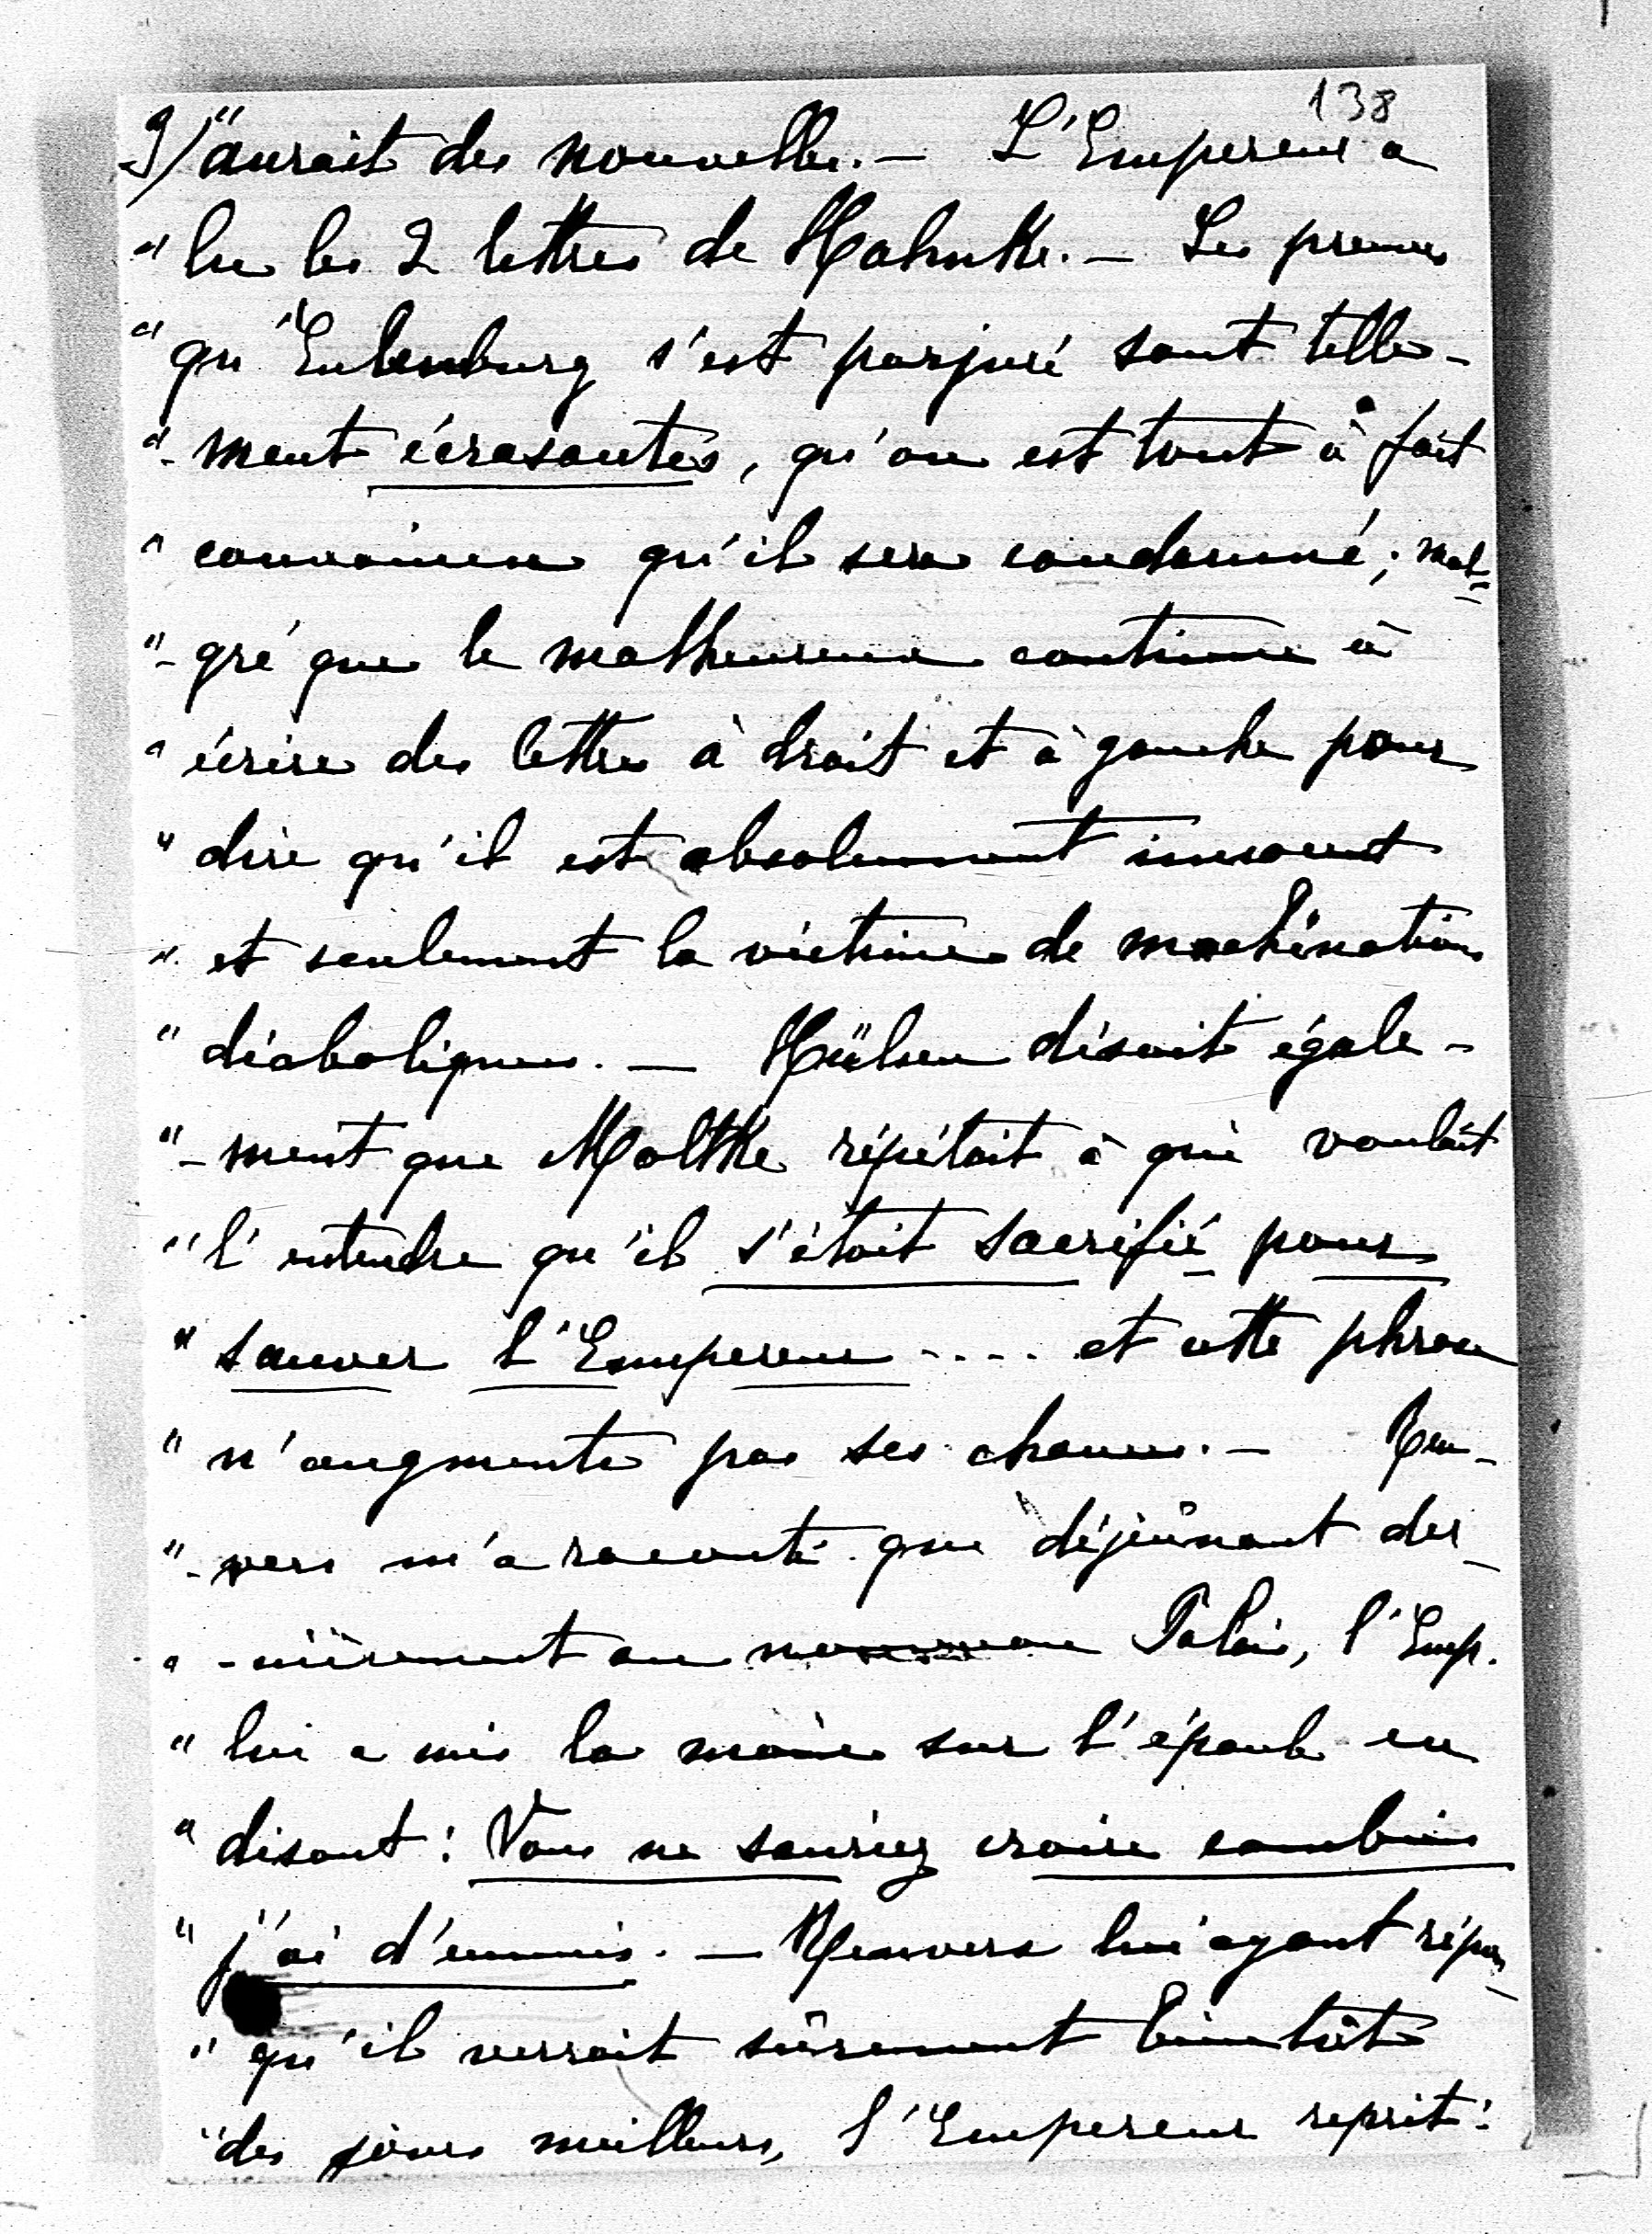 138
9/ "aurait des nouvelles. — L'Empereur a
" lu les 2 lettres de Hahnke. — Les preuves
" qu'Eulenburg s'est parjuré sont telle-
"-ment écrasantes, qu'on est tout à fait
" convaincu qu'il sera condamné; mal-
"-gré que le malheureux continue à
" écrire des lettres à droit et à gauche pour
" dire qu'il est absolument innocent
" et seulement la victime de machinations
" diaboliques. — Hülsen disait égale-
"-ment que Moltke répétait à qui voulait
" l'entendre qu'il s'était sacrifié pour
" sauver l'Empereur .... et cette phrase
" n'augmente pas ses chances. — Ren-
"-vers m'a raconté que déjeûnant der-
"-nièrement au nouveau Palais, l'Emp.
" lui a mis la main sur l'épaule en
" disant: Vous ne sauriez croire combien
" j'ai d'ennuis. — Renvers lui ayant répon-
" qu'il verrait sûrement bientôt
" des jours meilleurs, l'Empereur reprit: